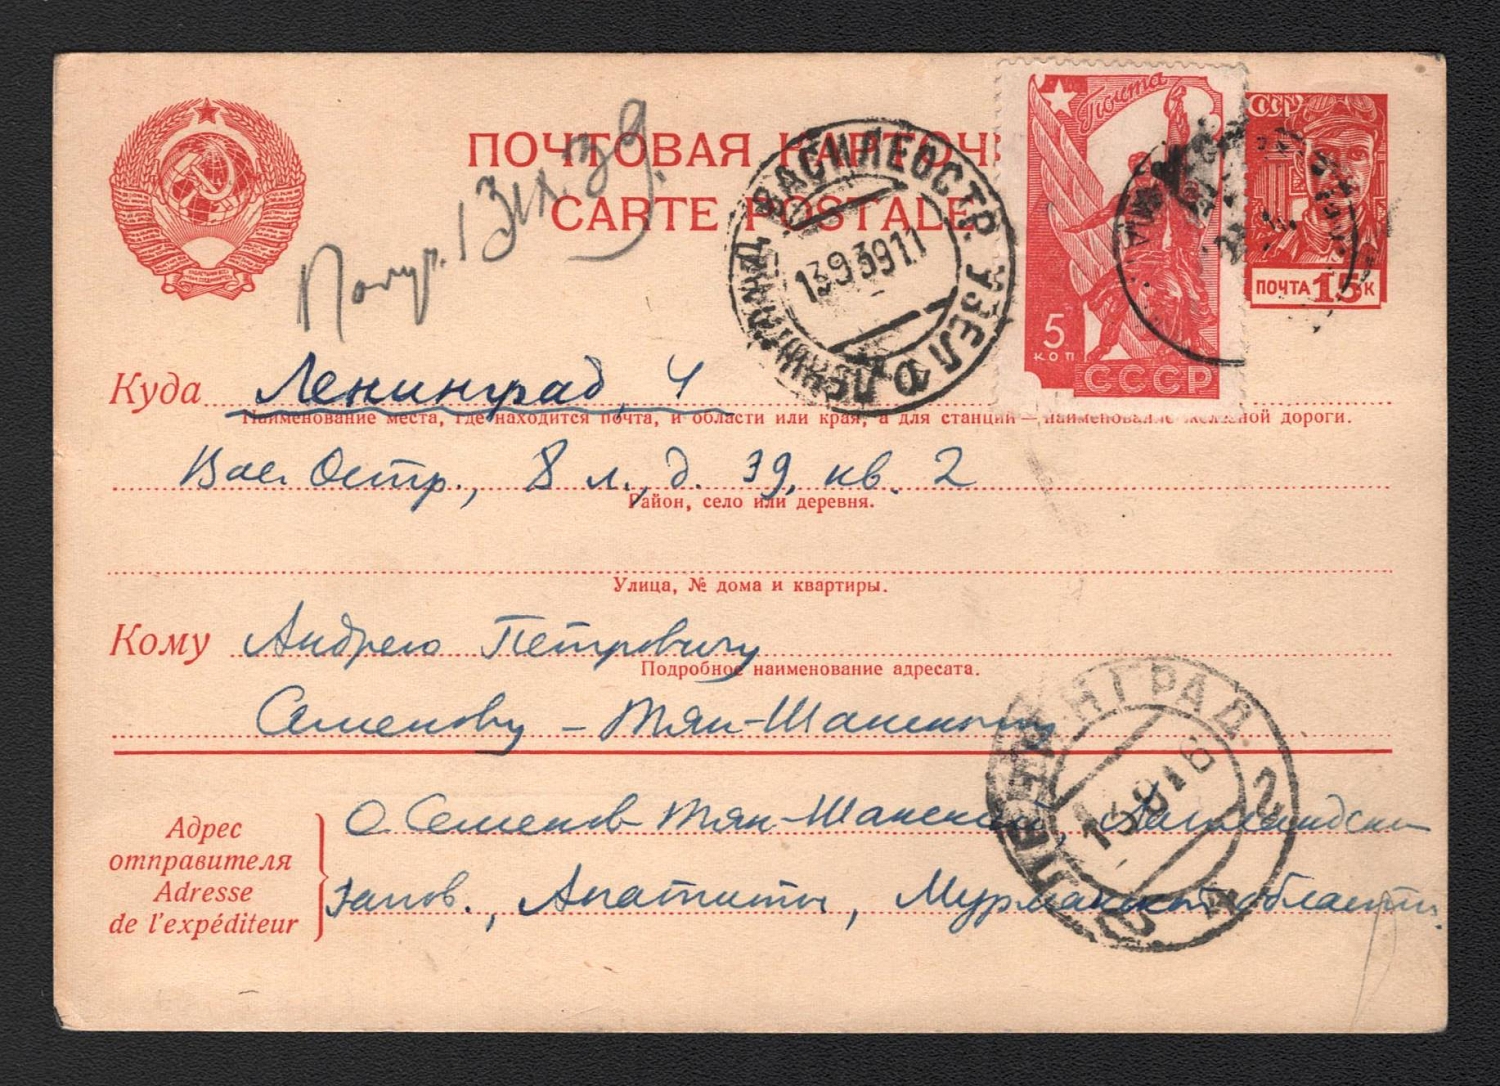 ПОЧТОВАЯ КАРТОЧ
CARTE POSTALE
Получ. 13 IX 39.
ВАСИЛЕОСТР. УЗЕЛ
ЛЕНИНГРАД
13 9 39 11
Почта
5
КОП
СССР
СССР
ПОЧТА 15 К
Куда Ленинград, 4
Наименование места, где находится почта, и области или края, а для станций — наименование железной дороги.
Вас. Остр., 8 л., д. 39, кв. 2
Район, село или деревня.
Улица, № дома и квартиры.
Кому Андрею Петровичу
Подробное наименование адресата.
Семенову-Тян-Шанскому
ЛЕНИНГРАД. 2
13 9
Адрес отправителя
Adresse de l'expéditeur
О. Семенов-Тян-Шанский, Лапландск
запов., Апатиты, Мурманской области.